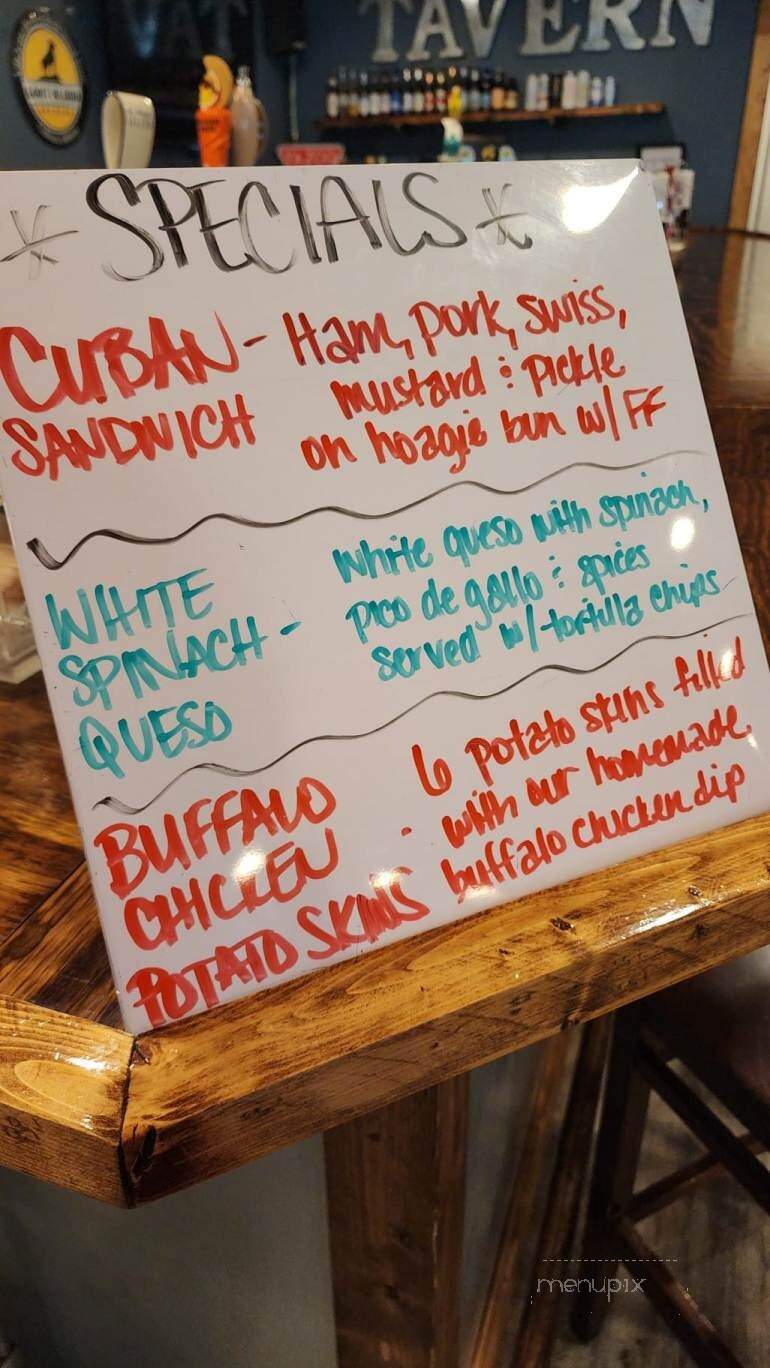 VAT
TAVERN
* SPECIALS *
CUBAN - Ham, pork, swiss,
SANDWICH mustard & pickle
on hoagie bun w/ FF
WHITE White queso with spinach,
SPINACH - pico de gallo & spices
QUESO served w/ tortilla chips
BUFFALO 6 potato skins filled
CHICKEN - with our homemade
POTATO SKINS buffalo chicken dip
menupix